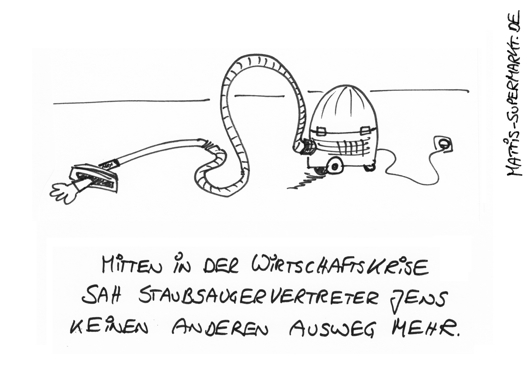 MATTIS-SUPERMARKT.DE
MITTEN IN DER WIRTSCHAFTSKRISE
SAH STAUBSAUGERVERTRETER JENS
KEINEN ANDEREN AUSWEG MEHR.